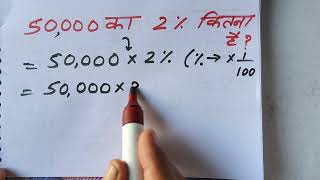 50,000 का 2% कितना है?
= 50,000 × 2% (% → × 1/100
= 50,000 ×